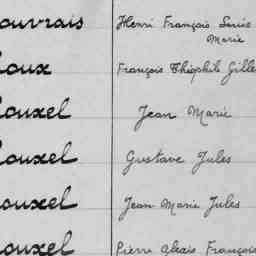 ouvrais Henri François Louis
Marie
oux François Théophile Gille
ouxel Jean Marie
ouxel Gustave Jules
ouxel Jean Marie Jules
ouxel Pierre Alexis François